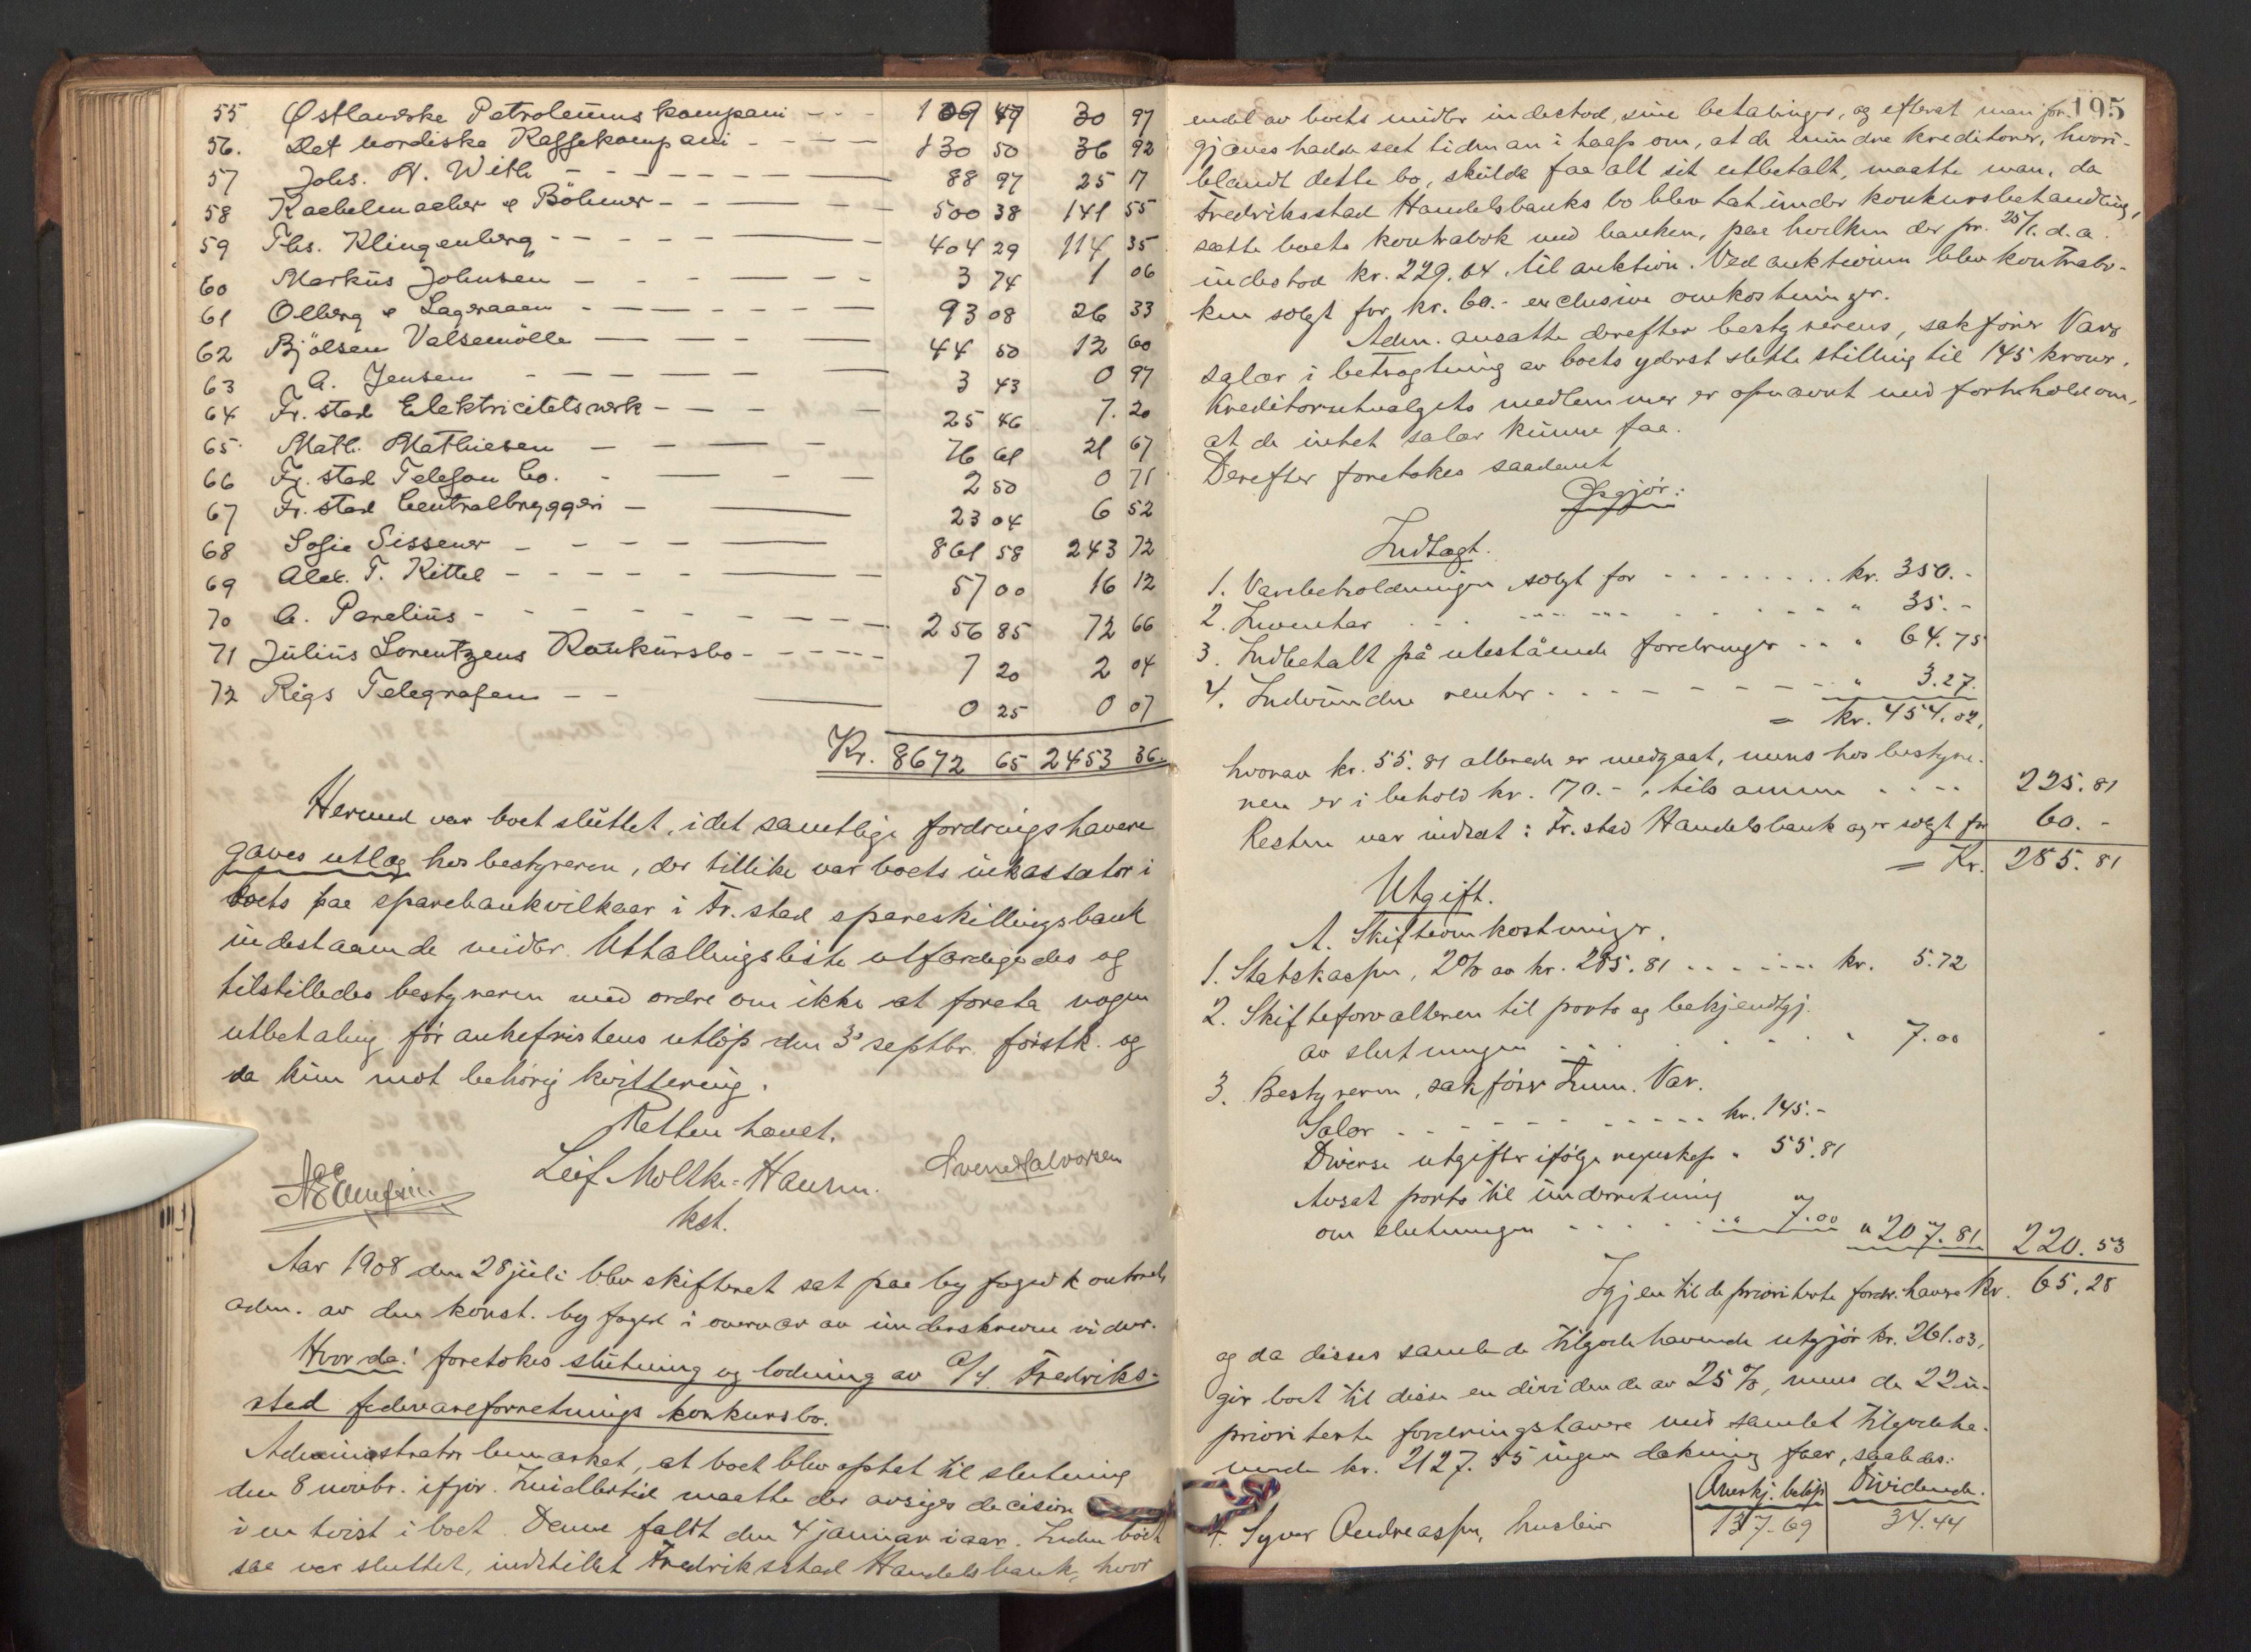 55 Østlandske Petroleumskompani - - - 109 49 30 97
56. Det nordiske Kaffekompani - - - - 130 50 36 92
57 Johs. H. With - - - - - - 88 97 25 17
58 Kachelmacher & Böhmer - - - - - 500 38 141 55
59 Ths. Klingenberg - - - - - - 404 29 114 35
60 Markus Johnsen - - - - - 3 74 1 06
61 Olberg & Lageraaen - - - - - - 93 08 26 33
62 Bjölsen Valsemölle - - - - 44 50 12 60
63 A. Jensen - - - - - - 3 43 0 97
64 Fr. stad Elektricitetsverk - - - - - 25 46 7. 20
65. Math. Mathiesen - - - - 76 61 21 67
66 Fr. stad Telefon Co. - - - - - 2 50 0 71
67 Fr. stad Centralbryggeri - - 23 04 6 52
68 Sofie Sissener - - - - - 861 58 243 72
69 Alex. T. Kittel - - - - - - 57 00 16 12
70 C. Parelius - - - - - - - - 256 85 72 66
71 Julius Lorentzens Konkursbo - - - - - 7 20 2 04
72 Rigs Telegrafen - - - 0 25 0 07
Kr. 8672 65 2453 36
Hermed var boet sluttet, idet samtlige fordringshavere
gaves utlæg hos bestyreren, der tillike var boets inkassator i
boets paa sparebankvilkaar i Fr. stad spareskillingsbank
indestaaende midler. Uttallingsliste utfærdigedes og
tilstilledes bestyreren med ordre om ikke at foreta nogen
utbetaling før ankefristens utløp den 3' septbr. førstk. og
da kun mot behørig kvittering.
Retten hævet.
Leif Moltke-Hansen. Svend Halvorsen
kst.
Aar 1908 den 28 juli blev skifteret sat paa byfogedkontoret
adm. av den konst. byfoged i overvær av underskrevne vidner.
Hvorda! foretokes slutning og lodning av A/S Fredriks-
stad fedevareforretnings konkursbo.
Administrator bemerket, at boet blev optat til slutning
den 8 novbr. ifjor. Imidlertid maatte der avsiges decision
i en tvist i boet. Denne faldt den 4 januar iaar. Inden boet
saa var sluttet, indstillet Fredriksstad Handelsbank, hvor
195
endel av boets midler indestod, sine betalinger, og efterat man for-
gjæves hadde seet tiden an i haap om, at de mindre kreditorer, hvori-
blandt dette bo, skulde faa alt sit utbetalt, maatte man, da
Fredriksstad Handelsbanks bo blev tat under konkursbehandling,
sætte boets kontrabok med banken, paa hvilken der pr. 25/1. d. a.
indestod kr. 229.04 til auktion. Ved auktionen blev kontrabo-
ken solgt for kr. 60.- exclusive omkostninger.
Adm. ansatte derefter bestyrerens, sakfører Vars
salær i betragtning av boets yderst slette stilling til 145 kroner.
Kreditorutvalgets medlemmer er opnævnt med forbehold om,
at de intet salær kunne faa.
Derefter foretokes saadant
Opgjør:
Indtægt.
1. Varebeholdningen solgt for - - - - - - - kr. 350.-
2. Inventar - - - - - - - - " 35.-
3. Indbetalt på utestående fordringer - - " 64.75
4. Indvundne renter - - - - - - - - " 3.27.
= kr. 454.02,
hvorav kr. 55.81 allerede er medgaat, mens hos bestyre-
ren er i behold kr. 170.-, tilsammen - - - - 225.81
Resten var indsat i Fr. stad Handelsbank og er solgt for 60.-
= Kr. 285.81
Utgift.
A. Skifteomkostninger.
1. Statskassen, 2% av kr. 285.81 - - - - - - kr. 5.72
2. Skifteforvalteren til porto og bekjendtgj.
av slutningen - - - - - - " 7.00
3. Bestyreren, sakfører Vår.
Salær - - - - - - - - - - kr. 145.-
Diverse utgifter ifølge regnskap " 55.81
Avsat porto til underretning
om slutningen - - - - - - " 7.00 " 207.81 220.53
Igjen til de prioriterte fordr. havere kr. 65.28
og da disses samlede tilgodehavende utgjør kr. 261.03,
gir boet til disse en dividende av 25%, mens de 22 u-
prioriterte fordringshavere med samlet tilgodeha-
vende kr. 2127.55 ingen dækning faar, saaledes:
Anerkj. beløp Dividende.
1. Syver Andreassen, husleie 137.69 34.44